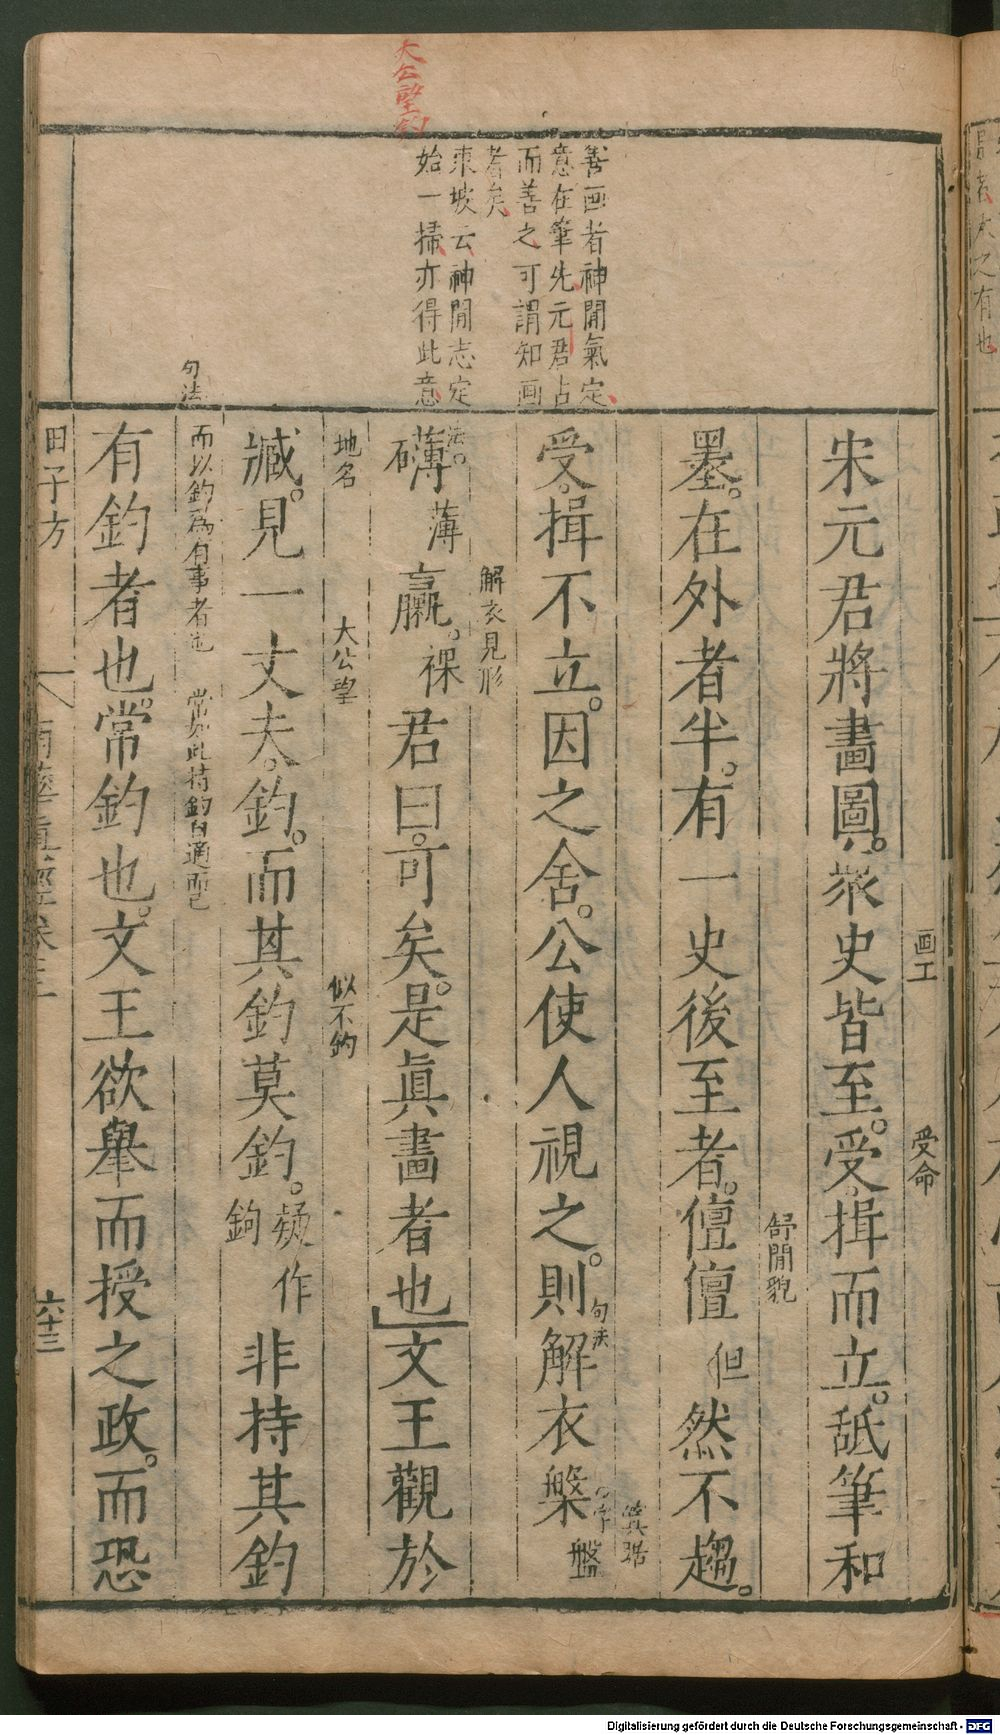 大公望釣
善画者神閒氣定
意在筆先元君占
而善之可謂知画
者矣
東坡云神閒志定
始一掃亦得此意
句法
画工
受命
宋元君將畫圖。衆史皆至。受揖而立。舐筆和
舒閒貌
墨。在外者半。有一史後至者。儃儃但然不趨。
箕踞
受揖不立。因之舍。公使人視之。則解衣槃盤
句法
字法。
解衣見形
礴薄臝。裸君曰。可矣。是眞畫者也文王觀於
地名
大公望
似不釣
臧。見一丈夫。釣。而其釣莫釣。疑作鉤非持其釣
而以釣爲有事者也
常如此持釣自適而已
有釣者也。常釣也。文王欲舉而授之政。而恐
田子方
南華眞經卷三
六十三
Digitalisierung gefördert durch die Deutsche Forschungsgemeinschaft - DFG